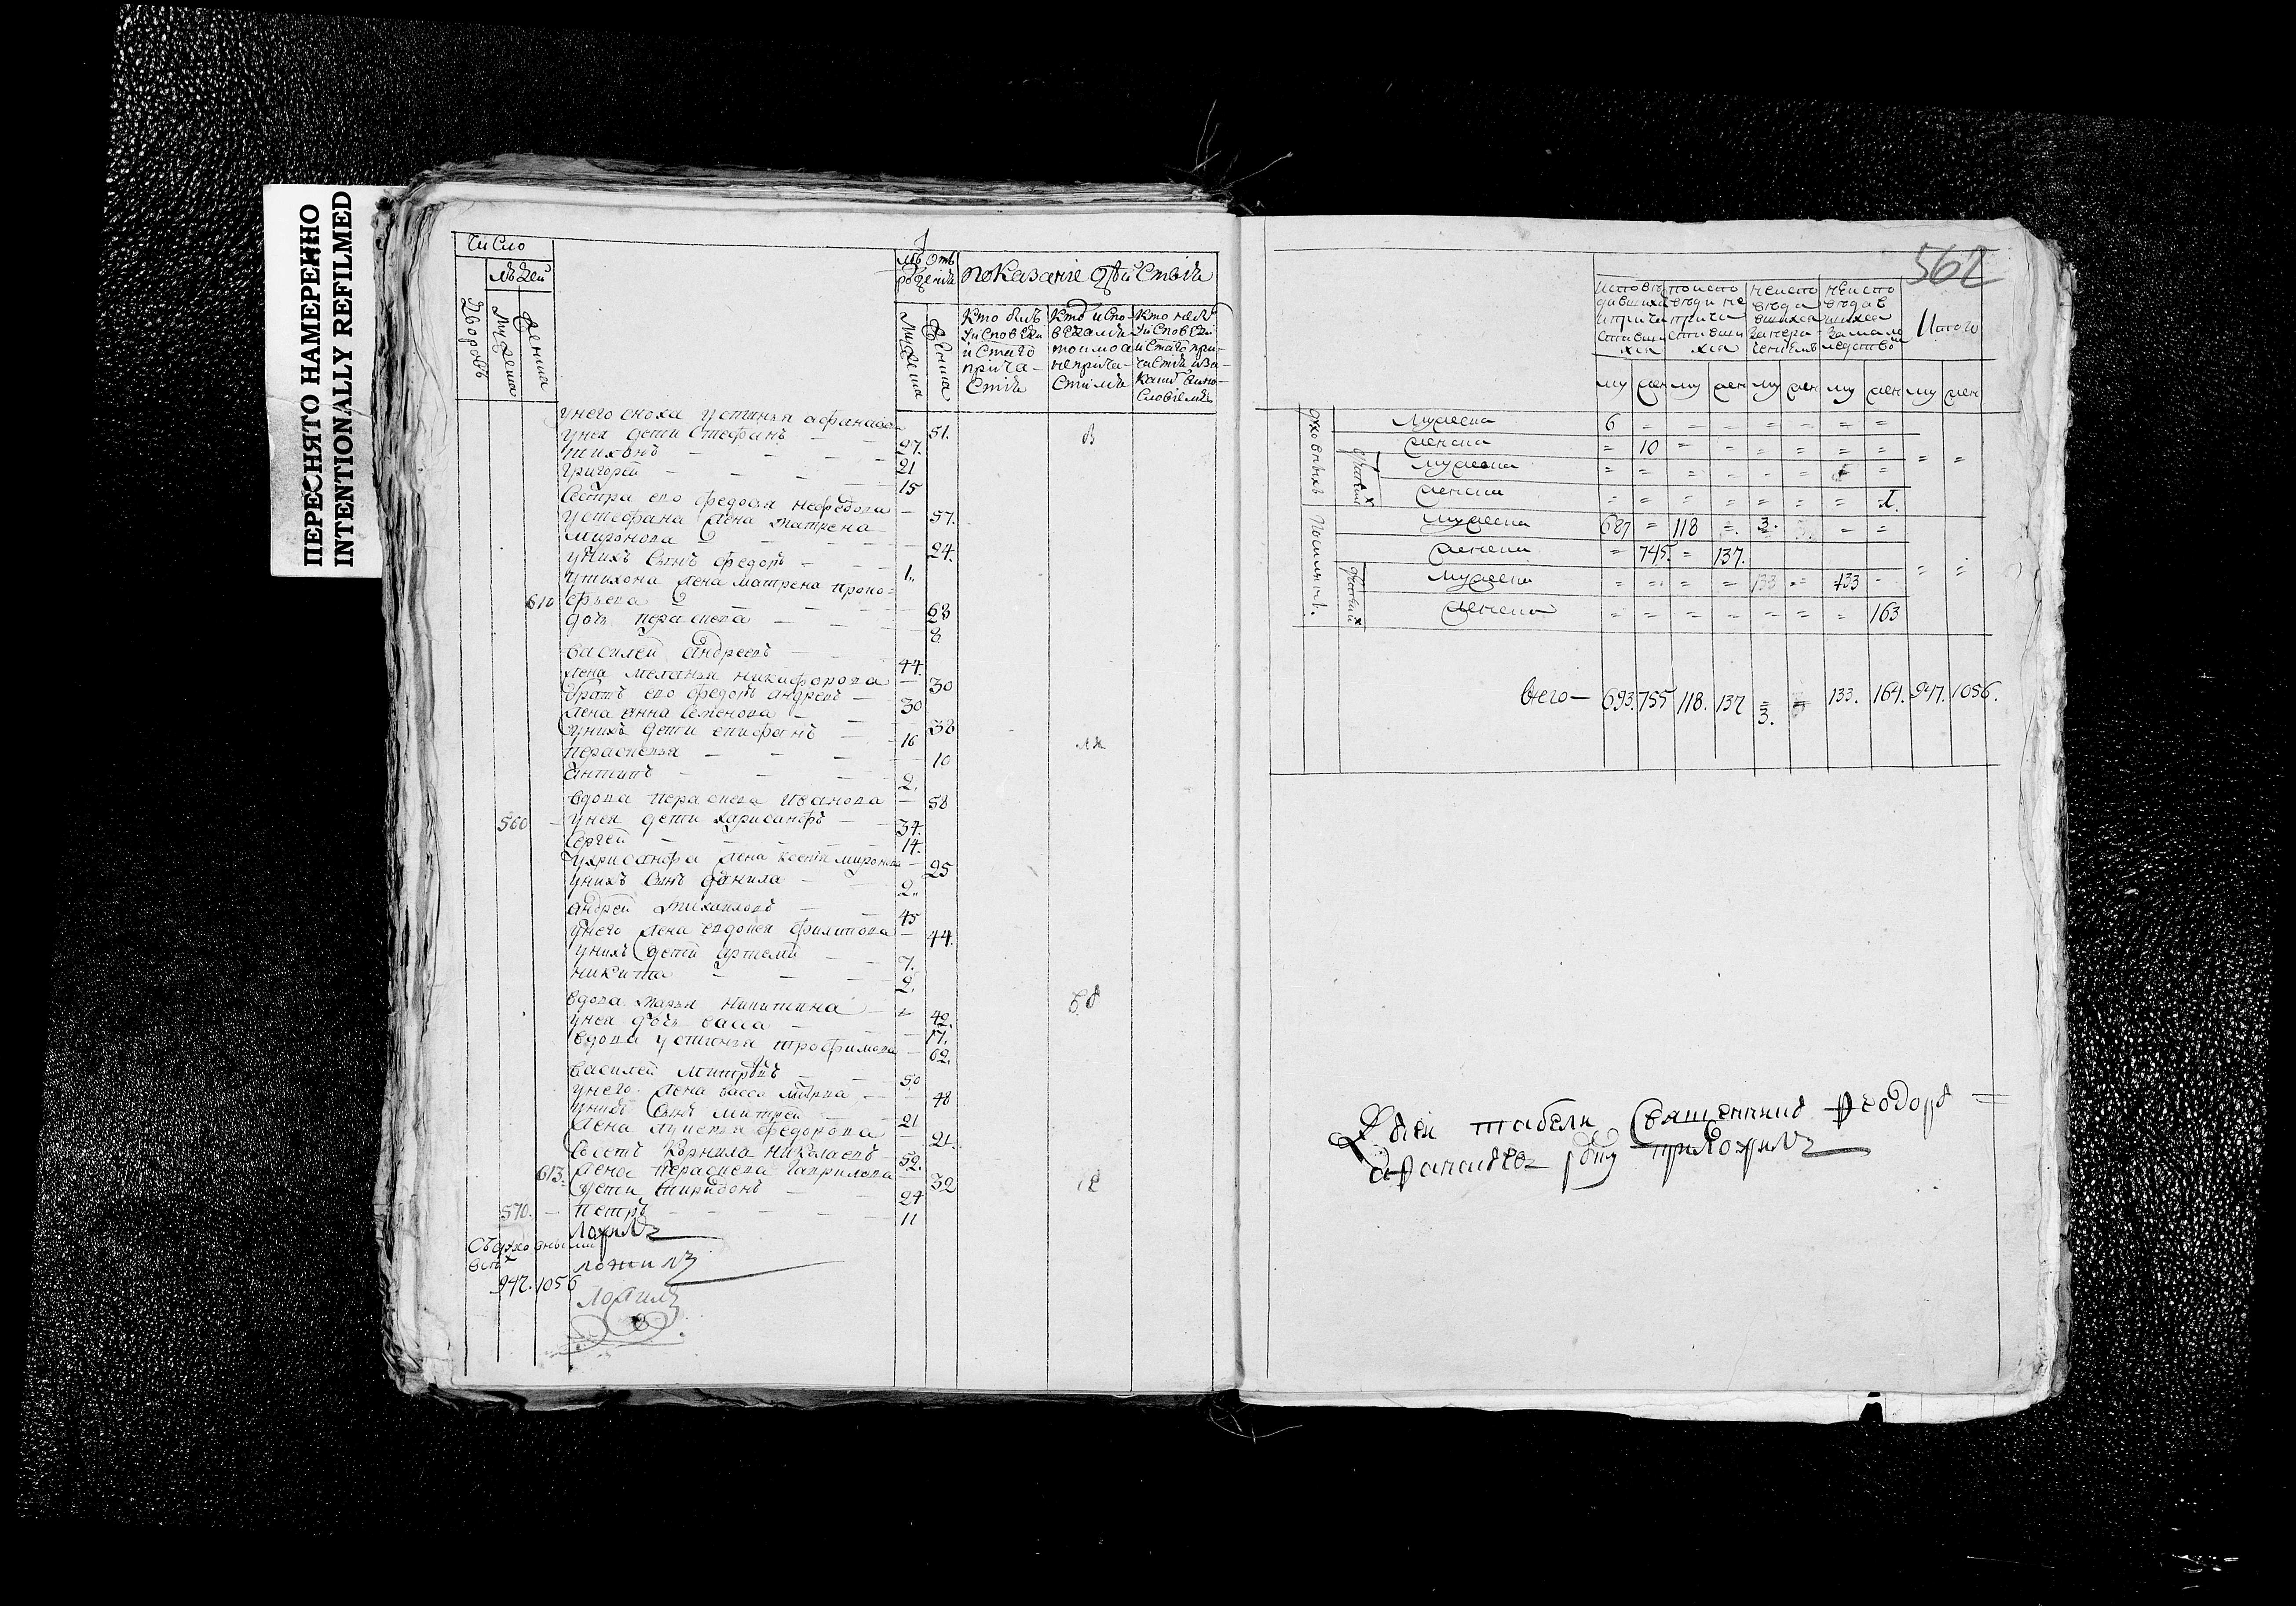 ПЕРЕСНЯТО НАМЕРЕННО
INTENTIONALLY REFILMED
Число
людей
Дворовъ
Мужеска
Женска
Лѣ Отъ
рожденія
Мужеска
Женска
показаніе дѣйствія
Кто былъ
у исповеди
и С̃таго
прича-
стія
Кто испо-
ведался
токмо а
не прича-
стился
Кто не былъ
у исповеди
и С̃таго при-
частія
у него сноха устинья афанасева 51.
у нея дети Стефанъ 27.
тихонъ 21
григорей 15
Сестра его федосья нефедова 57.
у стефана жена матрена
миронова 24.
у нихъ сынъ федоръ 1.
у тихона жена матрена проко-
610 фьева
дочь параскева 8.
василей андреевъ 44.
жена меланья никифорова 30
братъ его федоръ андреевъ 30
жена анна семенова 38
у нихъ дети епифанъ 16
параскевья 10
антипъ 2.
вдова параскева иванова 58
560 у нея дети харисанфъ 34.
Сергей 14.
у хрисанфа жена ксенія миронова 25
у нихъ сынъ данила 2.
андрей михаиловъ 45
у него жена евдокея филипова 44.
у нихъ дети артемий 7.
никита 2.
вдова марья никитина 42.
у нея дочь васса 17.
вдова устинья трофимова 62.
василей митревъ 50
у него жена васса 48
у нихъ сынъ митрей 21
жена лукерья федорова 21.
Корнила николаевъ 52.
613. жена параскева гаврилова 32
дети спиридонъ 24
570. петръ 11
ложилъ
Съ духовными
всѣхъ
947. 1056
ложилъ
ложилъ
562
Исповѣ
давшихся
и прича
стивши
хся
поиспо
веди не
прича
стивши
хся
неиспо
веда
вшихся
за нера
дениемъ
неиспо
ведав
шихся
за мало
летство
Итого
му жен му жен му жен му жен му жен
духовныхъ
Мужеска 6 = = = = = = =
женска = 10 = = = = = =
мужеска = = = = = = =
женска = = = = = = = 1.
Мужеска 687 = 118 = 3. = =
женска = 745. = 137.
мужеска = = = = 133 = 133 =
женска = = = = = = = 163
Всего — 693. 755 118. 137 3. = 133. 164. 947. 1056.
К сей табели Священникъ Феодоръ
афанасьевъ руку приложилъ